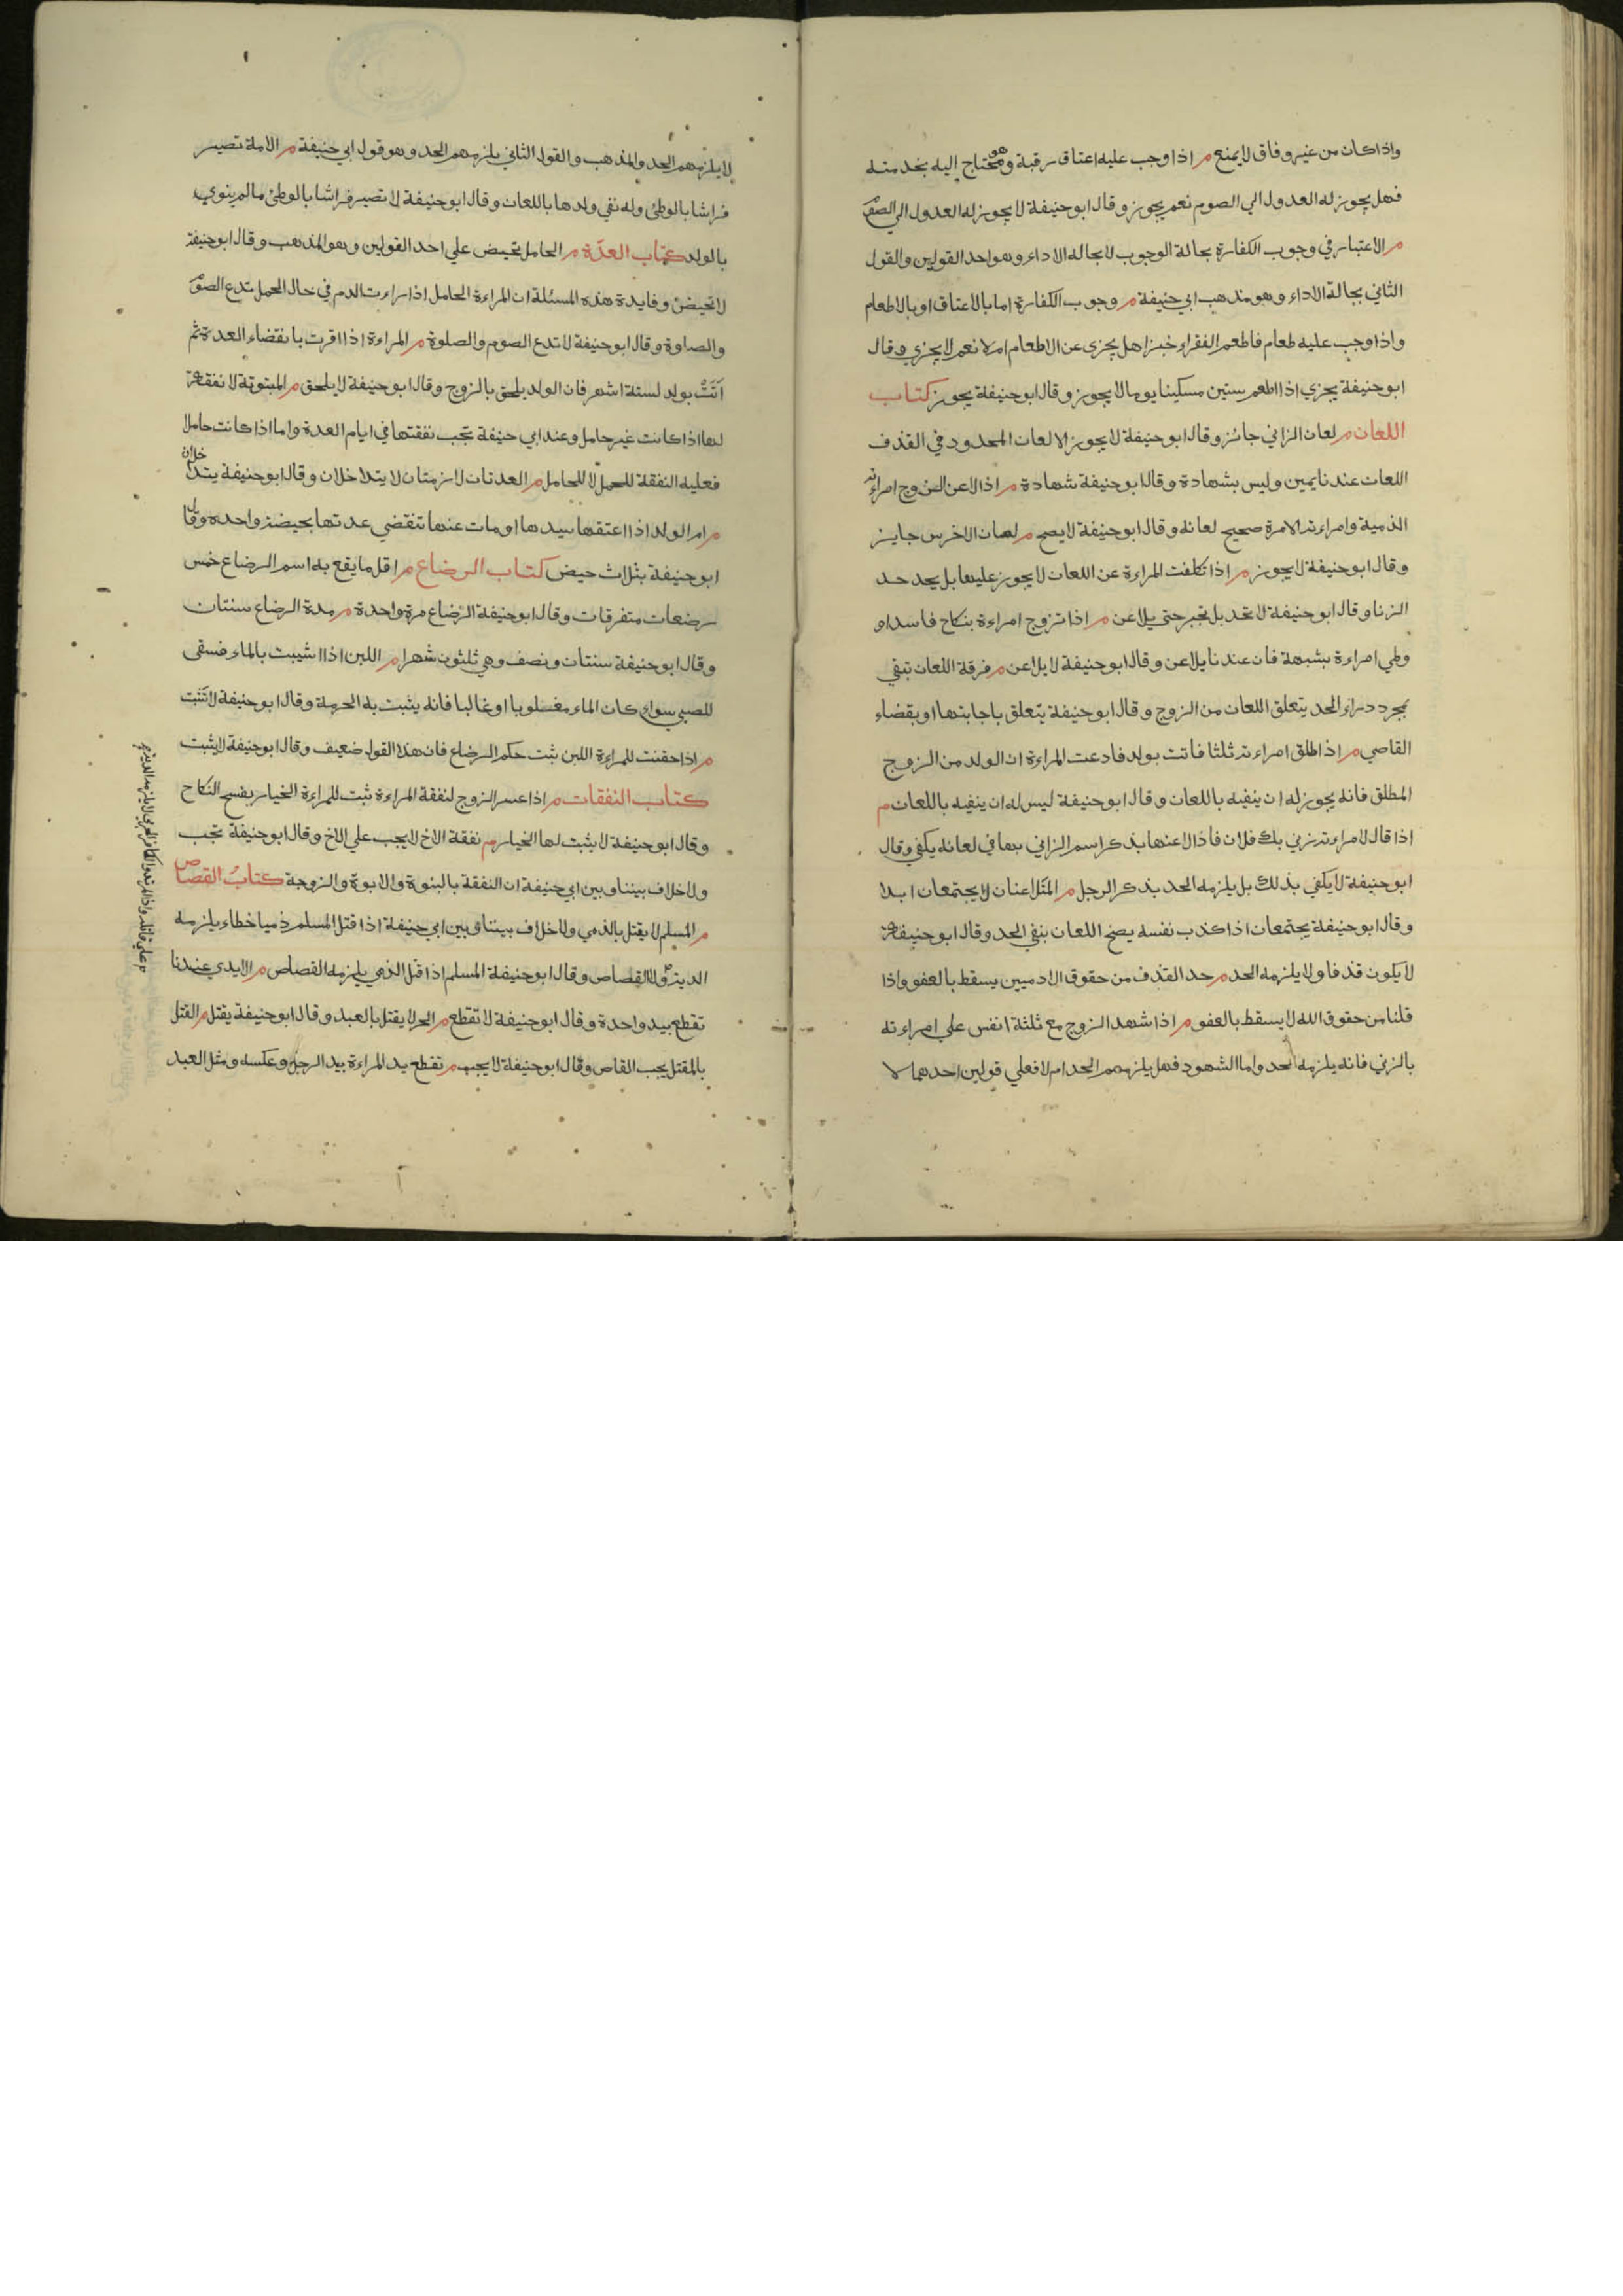 واذا كان من غير وفاق لا يمنع م اذا وجب عليه اعتاق رقبة وهو محتاج إليه بخدمته
فهل يجوز له العدول الي الصوم نعم يجوز وقال ابو حنيفة لا يجوز له العدول الي الصوم
م الاعتبار في وجوب الكفارة بحالة الوجوب لا بحاله الاداء وهو احد القولين والقول
الثاني بحالة الاداء وهو مذهب ابي حنيفة م وجوب الكفارة اما بالاعتاق او بالاطعام
واذا وجب عليه طعام فاطعم الفقراء خبزا هل يجزى عن الاطعام ام لا نعم لا يجزي وقال
ابو حنيفة يجزي اذا اطعم ستين مسكينا يوما لا يجوز وقال ابو حنيفة يجوز كتاب
اللعان م لعان الزاني جائز وقال ابو حنيفة لا يجوز الا لعان المحدود في القذف
اللعان عندنا يمين وليس بشهادة وقال ابو حنيفة شهادة م اذا لاعن الزوج امراءته
الذمية وامراءته الامة صحيح لعانه وقال ابو حنيفة لا يصح م لعان الاخرس جايز
وقال ابو حنيفة لا يجوز م اذا نكلفت المراءة عن اللعان لا يجوز عليها بل يحد حد
الزنا وقال ابو حنيفة لا تحد بل تجبر حتى يلاعن م اذا تزوج امراءة بنكاح فاسد او
وطي امراءة بشبهة فان عندنا يلاعن وقال ابو حنيفة لا يلاعن م فرقة اللعان تبقي
بمجرد دراء الحد يتعلق اللعان من الزوج وقال ابو حنيفة يتعلق باجابتها او بقضاء
القاصي م اذا طلق امراءته ثلثا فاتت بولد فادعت المراءة ان الولد من الزوج
المطلق فانه يجوز له ان ينفيه باللعان وقال ابو حنيفة ليس له ان ينفيه باللعان م
اذا قال لامراءته زني بك فلان فاذا لاعنها بذكر اسم الزاني بها في لعانه يكفي وقال
ابو حنيفة لا يكفي بذلك بل يلزمه الحد بذكر الرجل م المتلاعنان لا يجتمعان ابدا
وقال ابو حنيفة يجتمعان اذا كذب نفسه يصح اللعان بنفي الحد وقال ابو حنيفة
لا يكون قذفا ولا يلزمه الحد م حد القذف من حقوق الادميين يسقط بالعفو واذا
قلنا من حقوق الله لا يسقط بالعفو م اذا شهد الزوج مع ثلثة انفس على امراءته
بالزني فانه يلزمه الحد واما الشهود فهل يلزمهم الحد ام لا فعلي قولين احدهما لا
لا يلزمهم الحد والمذهب والقول الثاني يلزمهم الحد وهو قول ابي حنيفة م الامة تصير
فراشا بالوطئ وله نفي ولدها باللعان وقال ابو حنيفة لا تصير فراشا بالوطئ ما لم ينوي
بالولد كتاب العدّة م الحامل تحيض علي احد القولين وهو المذهب وقال ابو حنيفة
لا تحيض وفايدة هذه المسئلة ان المراءة الحامل اذا راءت الدم في حال الحمل تدع الصوم
والصلوة وقال ابو حنيفة لا تدع الصوم والصلوة م المراءة اذا اقرت بانقضاء العدة ثم
اتت بولد لستة اشهر فان الولد يلحق بالزوج وقال ابو حنيفة لا يلحق م المبتوتة لا نفقة
لها اذا كانت غير حامل وعند ابي حنيفة تجب نفقتها في ايام العدة واما اذا كانت حاملا
فعليه النفقة للحمل لا للحامل م العدتان لازمتان لا يتداخلان وقال ابو حنيفة يتداخلان
م ام الولد اذا اعتقها سيدها او مات عنها تنقضي عدتها بحيضة واحدة وقال
ابو حنيفة بثلاث حيض كتاب الرضاع م اقل ما يقع به اسم الرضاع خمس
رضعات متفرقات وقال ابو حنيفة الرضاع مرة واحدة م مدة الرضاع سنتان
وقال ابو حنيفة سنتان ونصف وهي ثلثون شهرا م اللبن اذا اشيبت بالماء فسقى
للصبي سواء كان الماء مغلوبا او غالبا فانه يثبت به الحرمة وقال ابو حنيفة لا تثبت
م اذا حقنت للمراءة اللبن ثبت حكم الرضاع فان هذا القول ضعيف وقال ابو حنيفة لا يثبت
كتاب النفقات م اذا عسر الزوج لنفقة المراءة ثبت للمراءة الخيار بفسخ النكاح
وقال ابو حنيفة لا يثبت لها الخيار م نفقة الاخ لا يجب علي الاخ وقال ابو حنيفة تجب
ولا خلاف بيننا وبين ابي حنيفة ان النفقة بالبنوة والابوة والزوجة كتاب القصاص
م المسلم لا يقتل بالذمي ولا خلاف بيننا وبين ابي حنيفة اذا قتل المسلم ذميا خطاء يلزمه
الدية ولا القصاص وقال ابو حنيفة المسلم اذا قتل الذمي يلزمه القصاص م الايدي عندنا
تقطع بيد واحدة وقال ابو حنيفة لا تقطع م الحر لا يقتل بالعبد وقال ابو حنيفة يقتل م القتل
بالمقتل يجب القاص وقال ابو حنيفة لا يجب م تقطع يد المراءة بيد الرجل وعكسه ومثل العبد